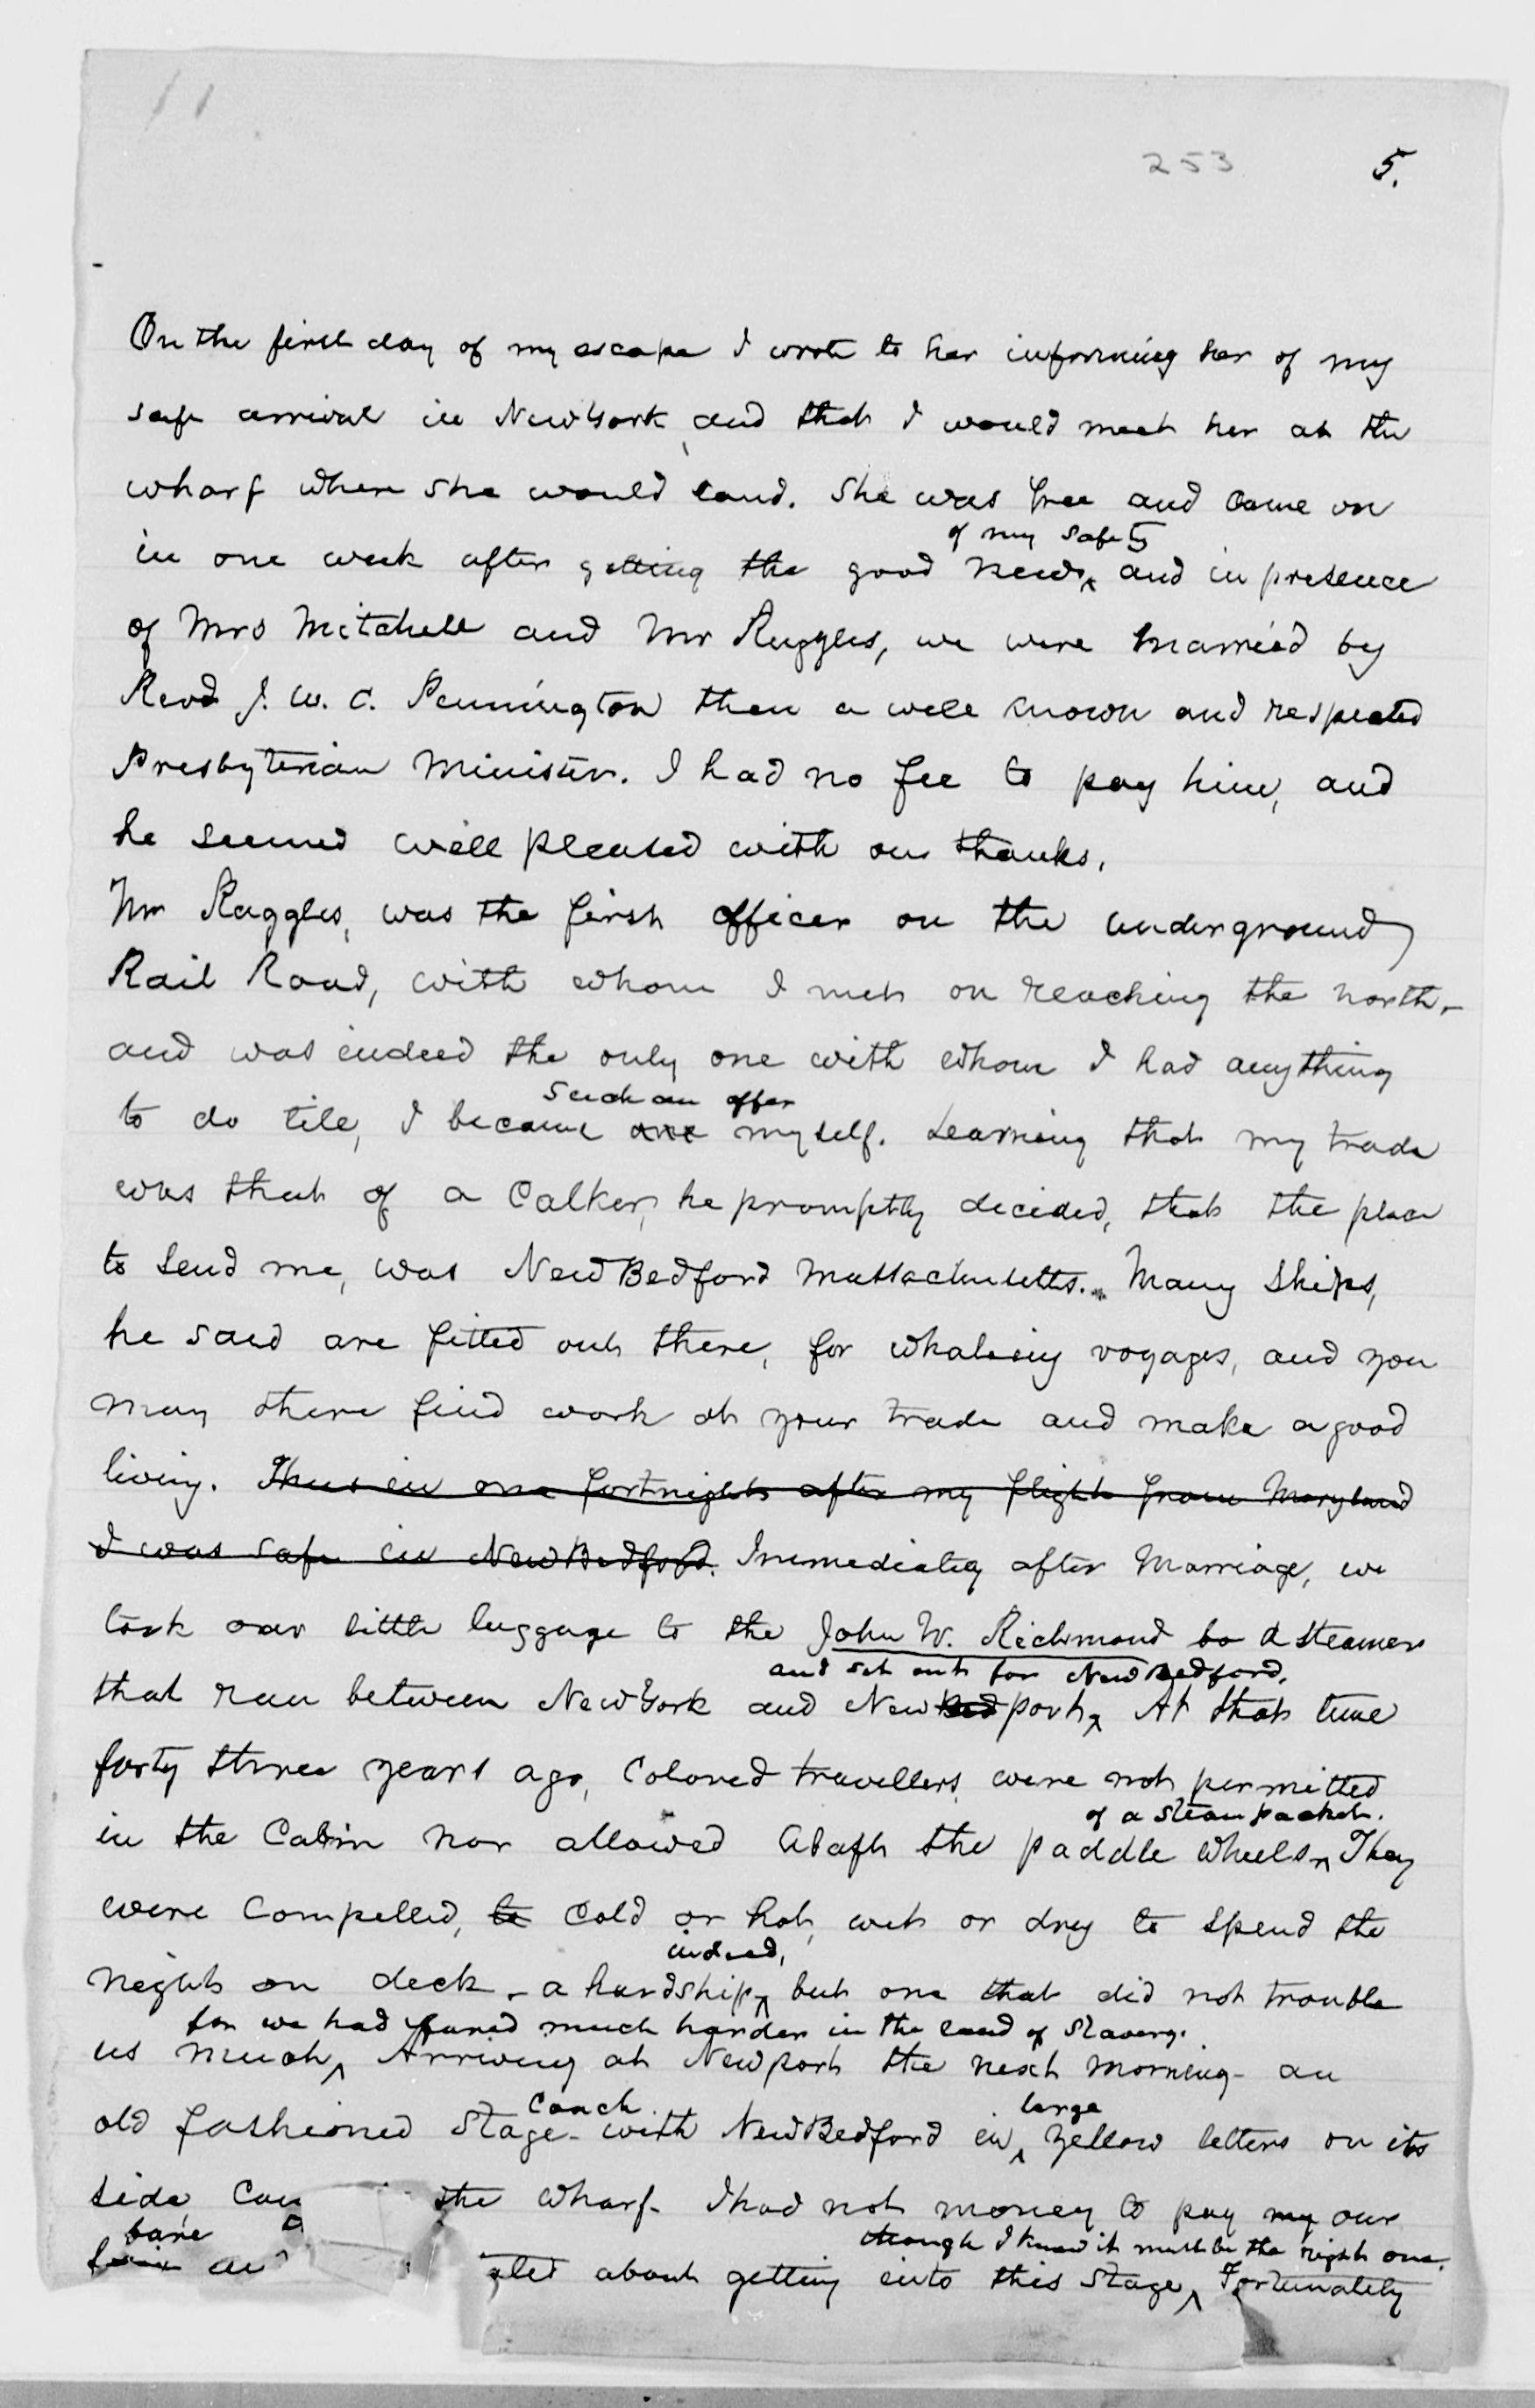 11
253 5.
On the first day of my escape I wrote to her informing her of my
safe arrival in New York, and that I would meet her at the
wharf where she would land. She was free and came on
of my safety
in one week after getting the good news ^ and in presence
of Mrs Mitchell and Mr Ruggles, we were married by
Revd J. W. C. Pennington then a well known and respected
Presbyterian Minister. I had no fee to pay him, and
he seemed well pleased with our thanks.
Mr Ruggles, was the first officer on the underground
Rail Road, with whom I met on reaching the north-
and was indeed the only one with whom I had anything
such an offer
to do till, I became one myself. Learning that my trade
was that of a Calker, he promptly decided, that the place
to send me, was New Bedford Massachusetts. Many Ships,
he said are fitted out there, for whaleing voyages, and you
may there find work at your trade and make a good
living. Thus in one fortnight after my flight from Maryland
I was safe in New Bedford. Immediatey after Marriage, we
took our little luggage to the John W. Richmond a steamer
and set out for New Bedford.
that ran between New York and New Bed port ^ At that time
forty three years ago, Colored travellers were not permitted
of a steam packet.
in the Cabin nor allowed abaft the paddle wheels ^ They
were compelled, to cold or hot, wet or dry to spend the
indeed,
night on deck - a hardship ^ but one that did not trouble
for we had fared much harder in the land of Slavery.
us much ^ Arriving at Newport the next morning - an
Coach large
old fashioned Stage - with New Bedford in ^ yellow letters on its
side the wharf - I had not money to pay my our
fare though I knew it must be the right one.
about getting into this stage ^ Fortunately